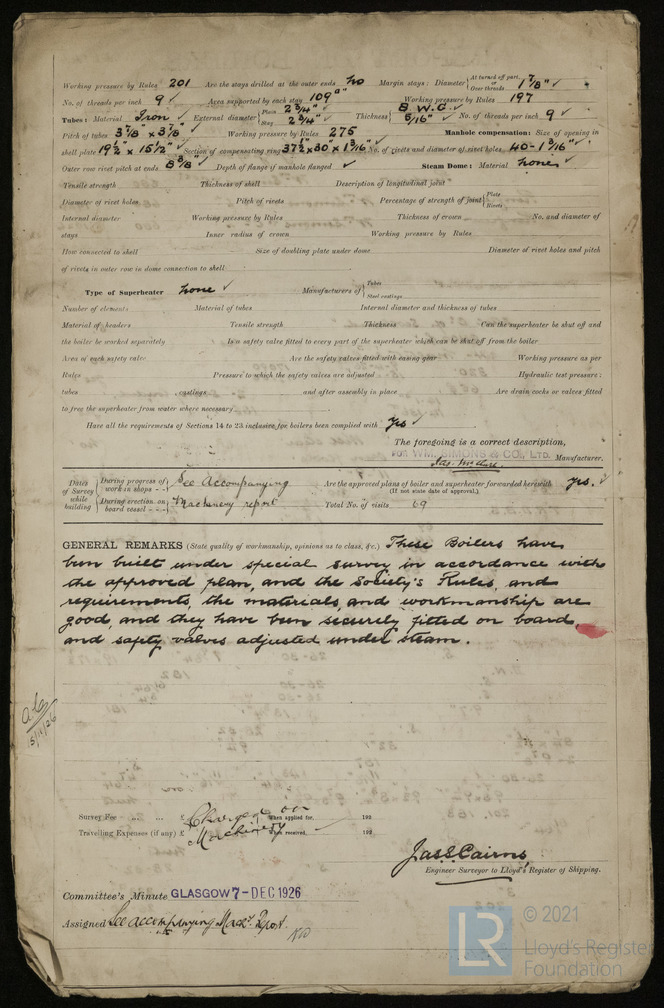 Working pressure by Rules 201 Are the stays drilled at the outer ends no Margin stays: Diameter { At turned off part, or Over threads 1 7/8" ✓
No. of threads per inch 9 ✓ Area supported by each stay 109 □" Working pressure by Rules 197
Tubes: Material Iron ✓ External diameter { Plain 2 3/4" Stay 2 3/4" ✓ Thickness { 8 W.G. ✓ 5/16" ✓ No. of threads per inch 9 ✓
Pitch of tubes 3 7/8" × 3 7/8" ✓ Working pressure by Rules 275 Manhole compensation: Size of opening in
shell plate 19 1/2" × 15 1/2" ✓ Section of compensating ring 37 1/2" × 30" × 1 3/16" ✓ No. of rivets and diameter of rivet holes 40 - 1 3/16" ✓
Outer row rivet pitch at ends 8 3/8" ✓ Depth of flange if manhole flanged ✓ Steam Dome: Material none ✓
Tensile strength Thickness of shell Description of longitudinal joint
Diameter of rivet holes Pitch of rivets Percentage of strength of joint { Plate Rivets
Internal diameter Working pressure by Rules Thickness of crown No. and diameter of
stays Inner radius of crown Working pressure by Rules
How connected to shell Size of doubling plate under dome Diameter of rivet holes and pitch
of rivets in outer row in dome connection to shell
Type of Superheater none ✓ Manufacturers of { Tubes Steel castings
Number of elements Material of tubes Internal diameter and thickness of tubes
Material of headers Tensile strength Thickness Can the superheater be shut off and
the boiler be worked separately Is a safety valve fitted to every part of the superheater which can be shut off from the boiler
Area of each safety valve Are the safety valves fitted with easing gear Working pressure as per
Rules Pressure to which the safety valves are adjusted Hydraulic test pressure:
tubes castings and after assembly in place Are drain cocks or valves fitted
to free the superheater from water where necessary
Have all the requirements of Sections 14 to 23 inclusive for boilers been complied with yes ✓
The foregoing is a correct description,
FOR WM. SIMONS & CO., LTD. Manufacturer.
Dates of Survey while building { During progress of work in shops - - See Accompanying Are the approved plans of boiler and superheater forwarded herewith yes. ✓
(If not state date of approval.)
During erection on board vessel - - - Machinery report Total No. of visits 69
GENERAL REMARKS (State quality of workmanship, opinions as to class, &c.) These Boilers have
been built under special survey in accordance with
the approved plan, and the Society's Rules, and
requirements, the materials, and workmanship are
good, and they have been securely fitted on board,
and safety valves adjusted under steam.
5/11/26
Survey Fee ... ... £ Charged on When applied for, 192
Travelling Expenses (if any) £ Machinery When received, 192
Jas. S. Cairns
Engineer Surveyor to Lloyd's Register of Shipping.
Committee's Minute GLASGOW 7 - DEC 1926
Assigned See accompanying Mach'y Report.
LR © 2021
Lloyd's Register
Foundation